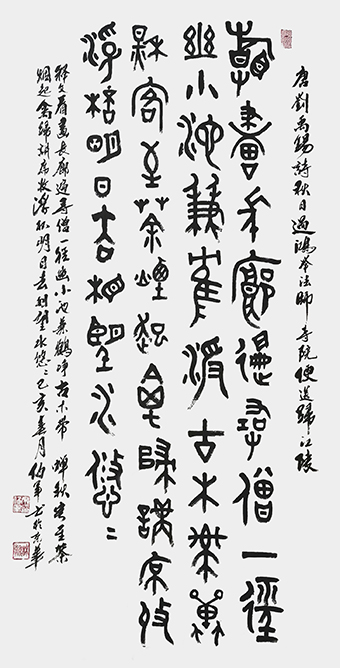 唐劉禹錫詩秋日過鴻舉法師寺院便送歸江陵
看畫長廊遍尋僧一徑
幽小池兼隺淨古木帶蟬
秋客至茶煙起禽歸講席收
浮桮明日去相望水悠〻
釋文看畫長廊遍尋僧一徑幽小池兼鶴淨古木帶蟬秋客至茶
烟起禽歸講席收浮杯明日去相望水悠〻己亥春月伯軍書於京華